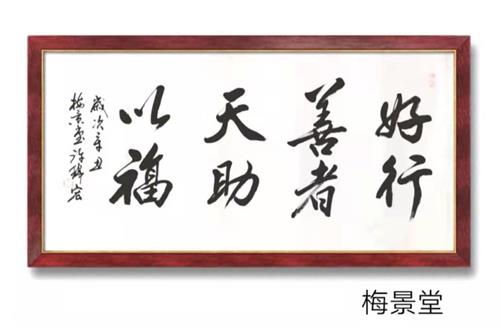 好行
善者
天助
以福
歲次辛丑
梅景堂許韓宏
梅景堂